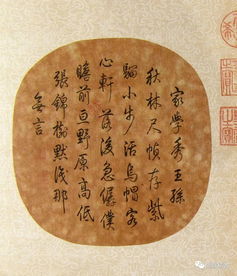 家學秀王孫
秋林尺幀存紫
騮小步活烏帽客
心軒落後急僕
瞻前亘野原高低
張錦樹默那
言